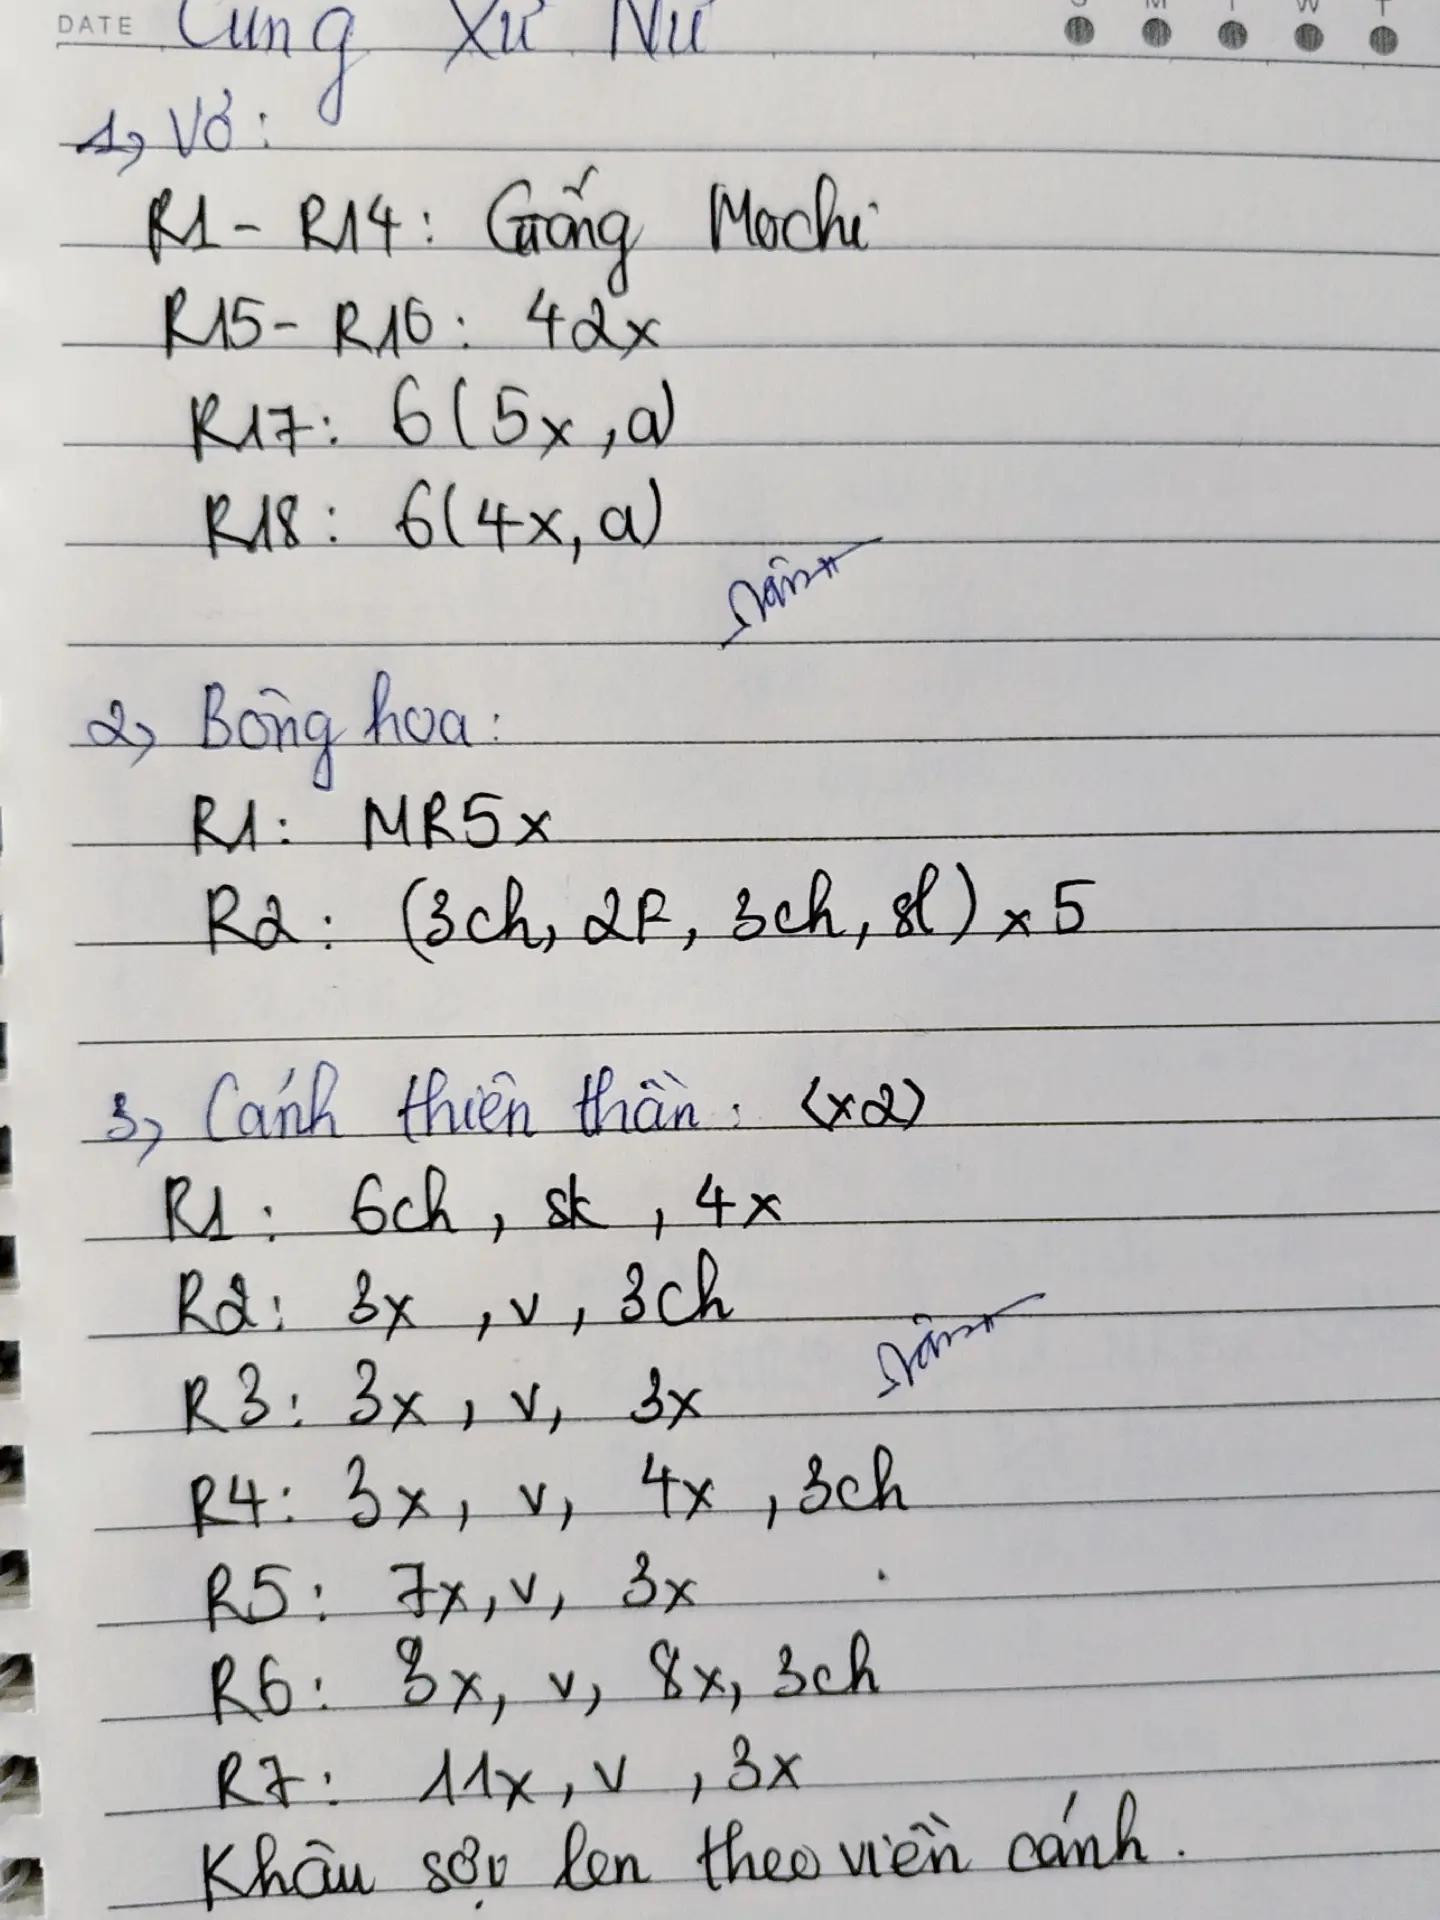 DATE Cung Xử Nữ
S M T W T
1, Vỏ:
R1 - R14: Giống Mochi
R15 - R16: 42x
R17: 6(5x, a)
R18: 6(4x, a)
2, Bông hoa:
R1: MR5x
R2: (3ch, 2F, 3ch, sl) x 5
3, Cánh thiên thần: (x2)
R1: 6ch, sk, 4x
R2: 3x, v, 3ch
R3: 3x, v, 3x
R4: 3x, v, 4x, 3ch
R5: 7x, v, 3x
R6: 3x, v, 8x, 3ch
R7: 11x, v, 3x
Khâu sợi len theo viền cánh.